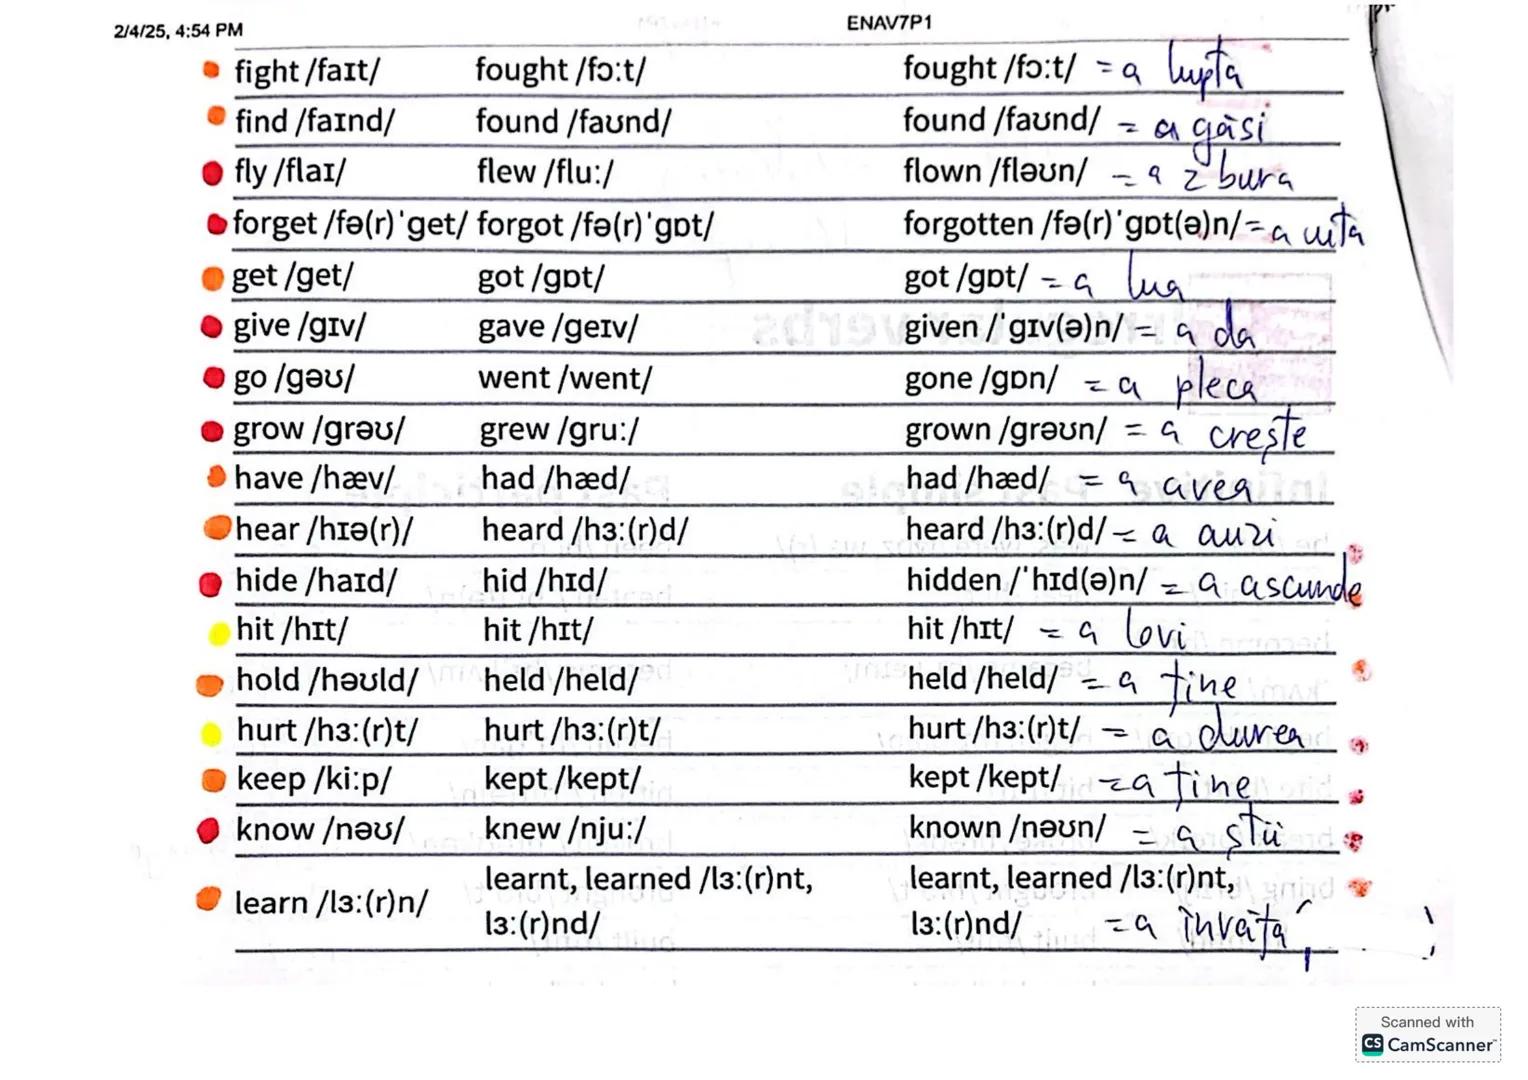 2/4/25, 4:54 PM ENAV7P1
fight /faɪt/ fought /fɔ:t/ fought /fɔ:t/ = a lupta
find /faɪnd/ found /faʊnd/ found /faʊnd/ = a găsi
fly /flaɪ/ flew /flu:/ flown /fləʊn/ = a zbura
forget /fə(r)ˈget/ forgot /fə(r)ˈgɒt/ forgotten /fə(r)ˈgɒt(ə)n/ = a uita
get /get/ got /gɒt/ got /gɒt/ = a lua
give /gɪv/ gave /geɪv/ given /ˈgɪv(ə)n/ = a da
go /gəʊ/ went /went/ gone /gɒn/ = a pleca
grow /grəʊ/ grew /gru:/ grown /grəʊn/ = a crește
have /hæv/ had /hæd/ had /hæd/ = a avea
hear /hɪə(r)/ heard /hɜ:(r)d/ heard /hɜ:(r)d/ = a auzi
hide /haɪd/ hid /hɪd/ hidden /ˈhɪd(ə)n/ = a ascunde
hit /hɪt/ hit /hɪt/ hit /hɪt/ = a lovi
hold /həʊld/ held /held/ held /held/ = a ține
hurt /hɜ:(r)t/ hurt /hɜ:(r)t/ hurt /hɜ:(r)t/ = a durea
keep /ki:p/ kept /kept/ kept /kept/ = a ține
know /nəʊ/ knew /nju:/ known /nəʊn/ = a știi
learn /lɜ:(r)n/ learnt, learned /lɜ:(r)nt, learnt, learned /lɜ:(r)nt,
lɜ:(r)nd/ lɜ:(r)nd/ = a învăța
Scanned with
CS CamScanner